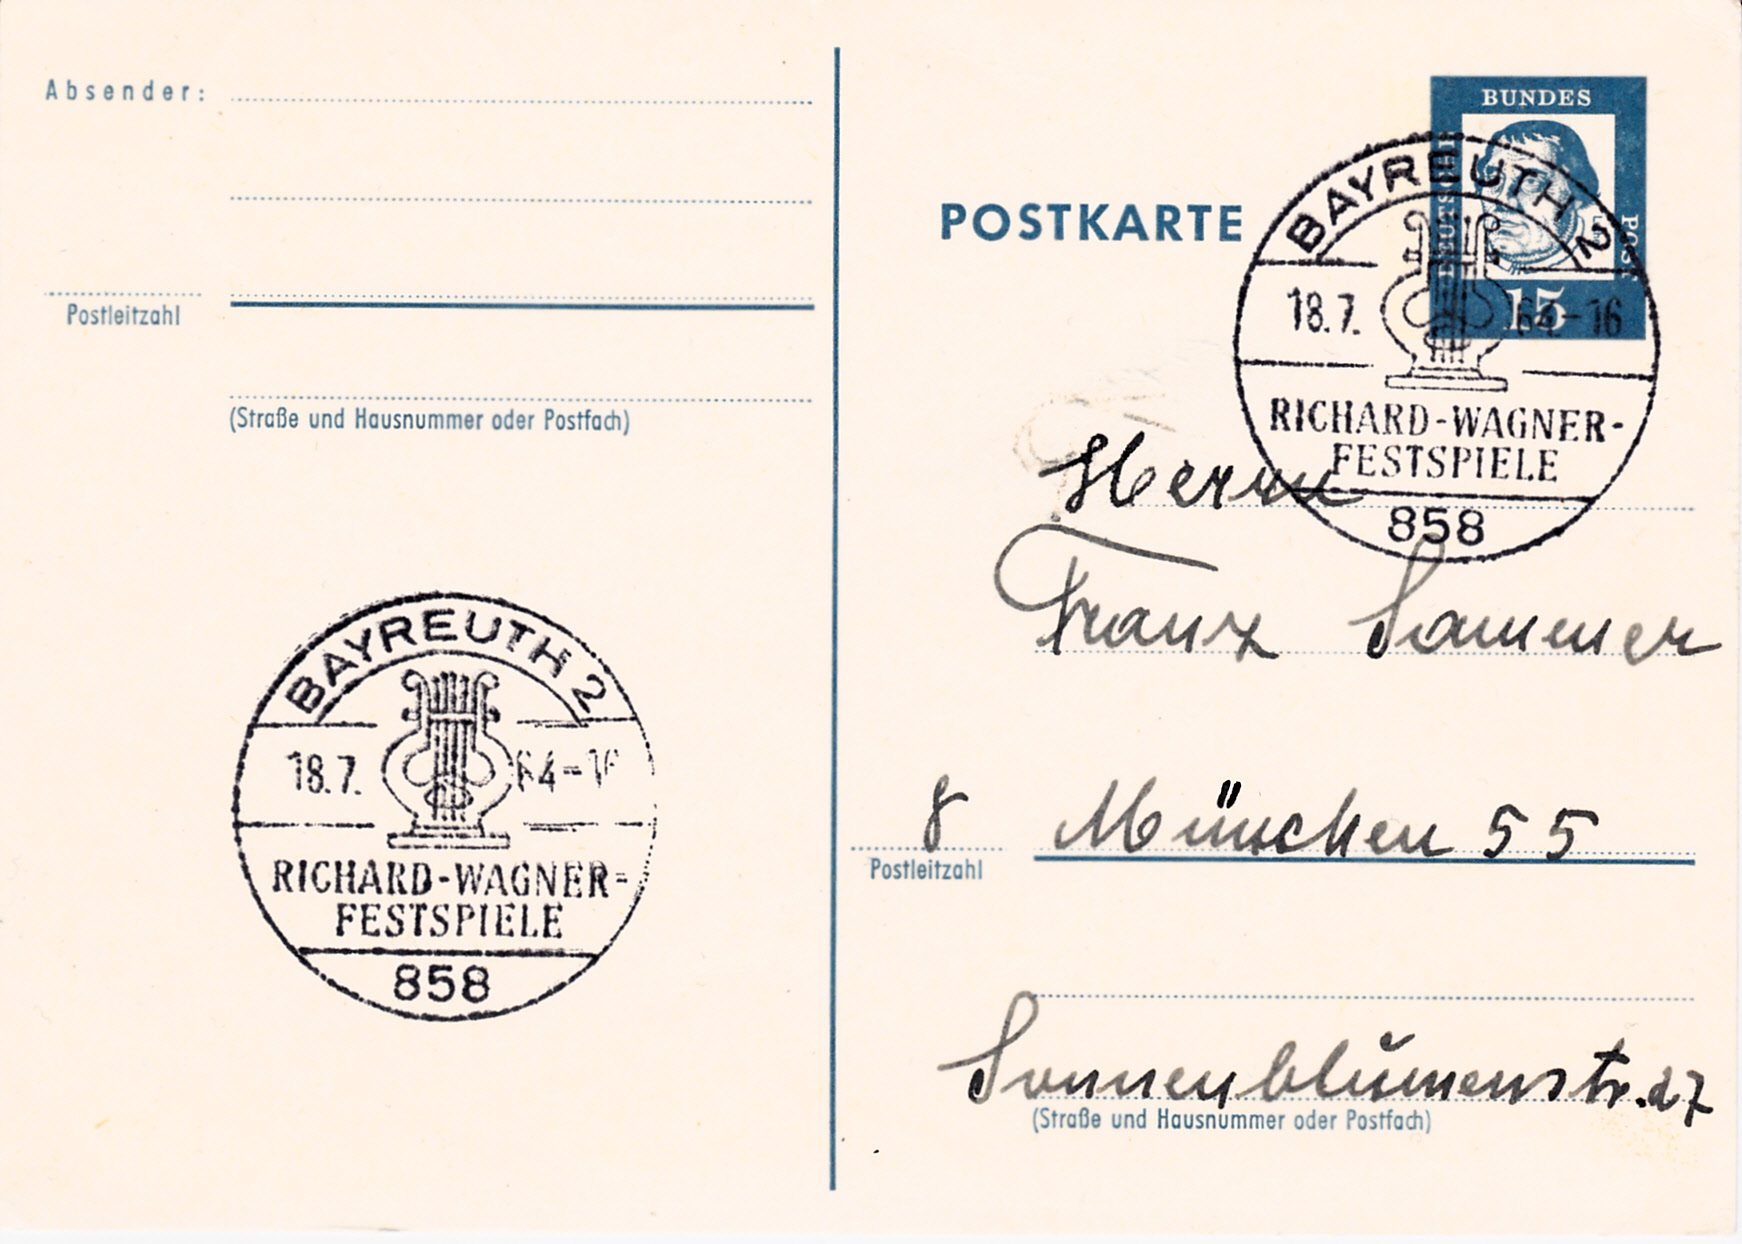 Absender:
Postleitzahl
(Straße und Hausnummer oder Postfach)
BAYREUTH 2
18.7. 64-16
RICHARD-WAGNER-
FESTSPIELE
858
BUNDES
DEUTSCHE
POST
15
POSTKARTE
BAYREUTH 2
18.7. 64-16
RICHARD-WAGNER-
FESTSPIELE
858
Herrn
Franz Sammer
8 München 55
Postleitzahl
Sonnenblumenstr. 27
(Straße und Hausnummer oder Postfach)